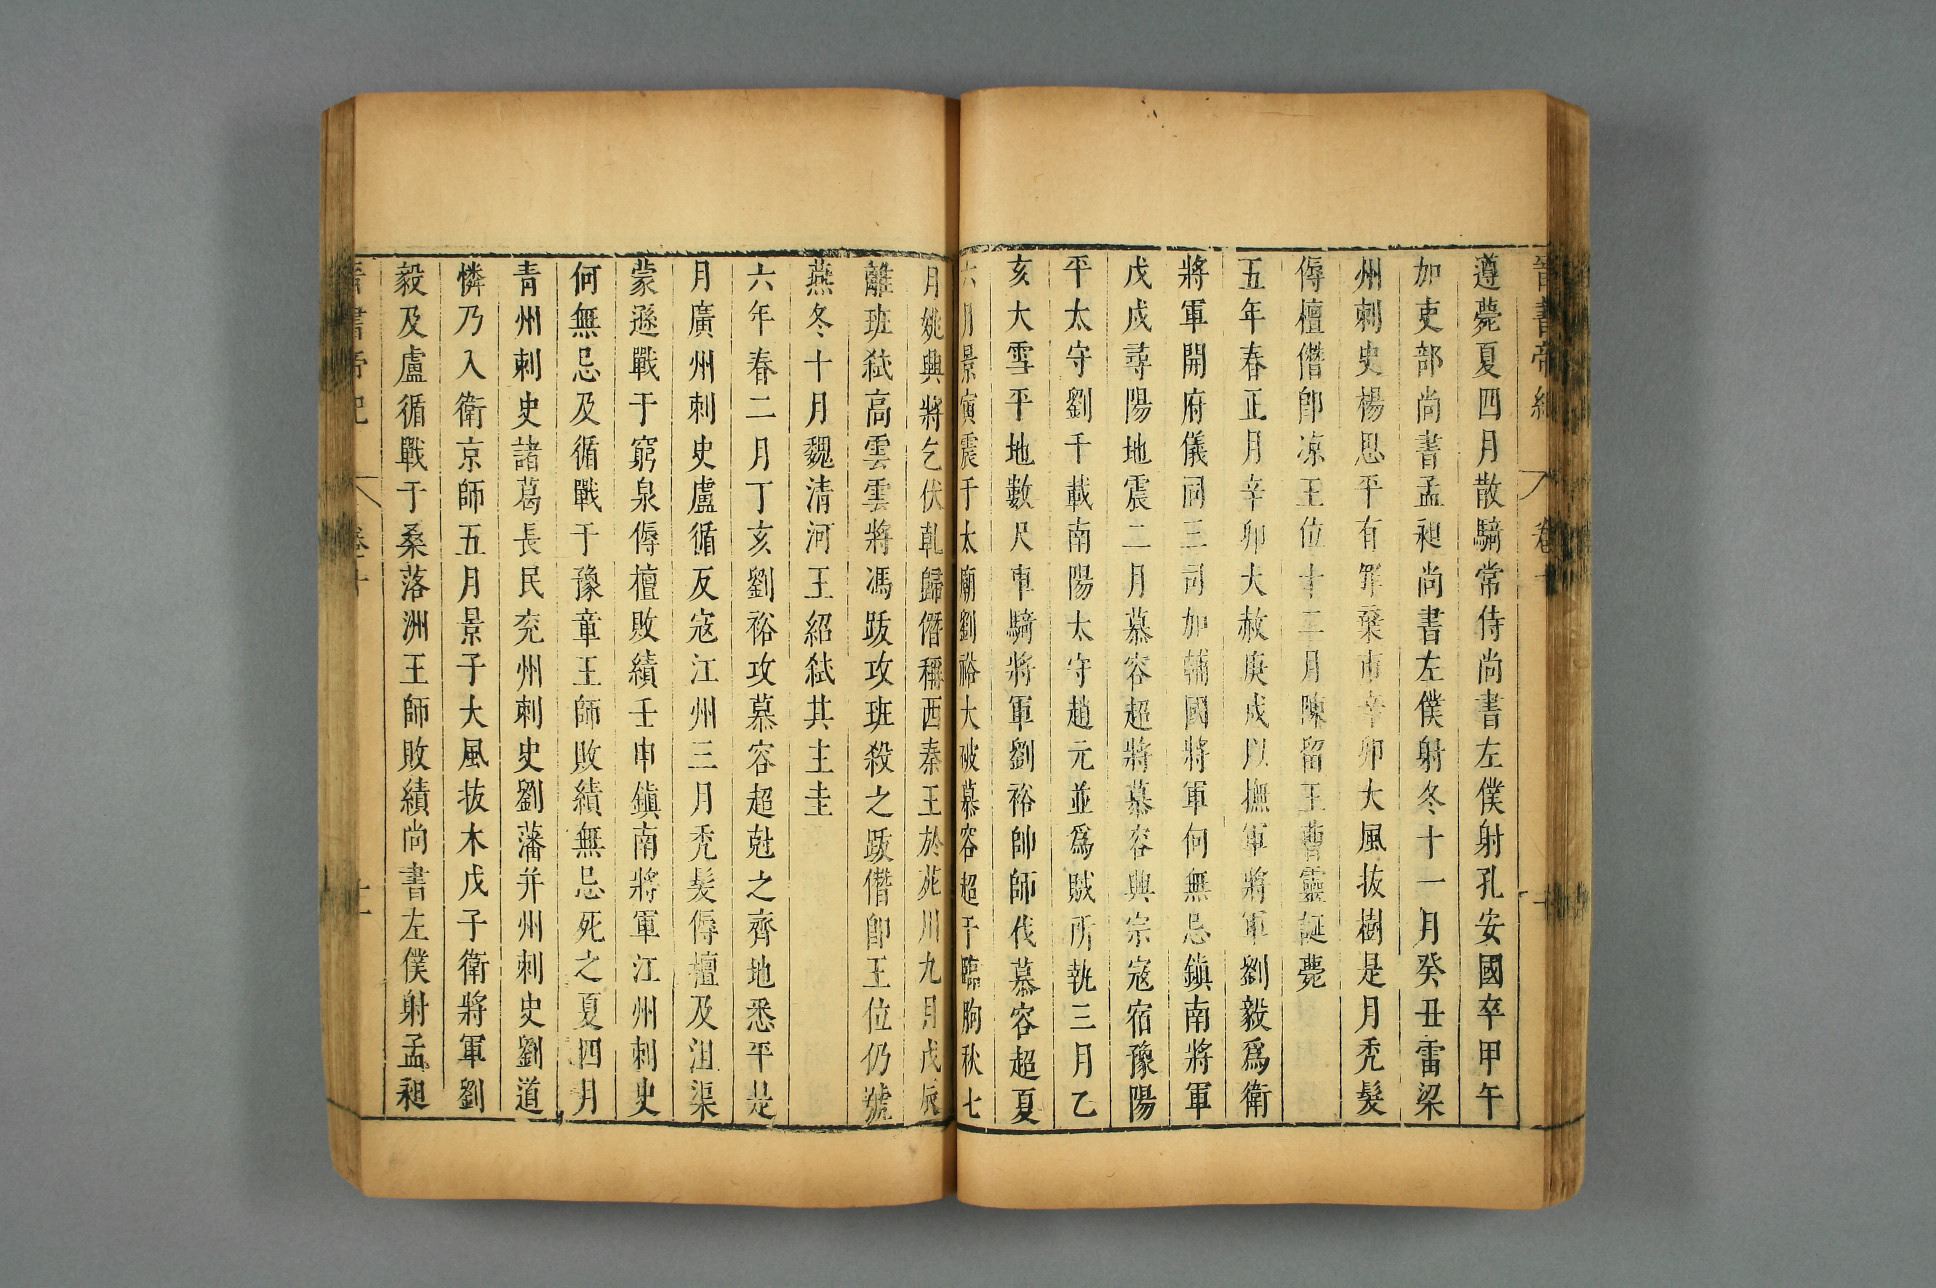 晉書帝紀 卷十
遵薨夏四月散騎常侍尚書左僕射孔安國卒甲午
加吏部尚書孟昶尚書左僕射冬十一月癸丑雷梁
州刺史楊思平有罪棄市辛卯大風拔樹是月禿髮
傉檀僭卽凉王位十二月陳留王曹靈誕薨
五年春正月辛卯大赦庚戌以撫軍將軍劉毅爲衛
將軍開府儀同三司加輔國將軍何無忌鎭南將軍
戊戌尋陽地震二月慕容超將慕容興宗寇宿豫陽
平太守劉千載南陽太守趙元並爲賊所執三月乙
亥大雪平地數尺車騎將軍劉裕帥師伐慕容超夏
六月景寅震于太廟劉裕大破慕容超于臨朐秋七
月姚興將乞伏乾歸僭稱西秦王於苑川九月戊辰
離班弑高雲雲將馮跋攻班殺之跋僭卽王位仍號
燕冬十月魏清河王紹弑其主圭
六年春二月丁亥劉裕攻慕容超尅之齊地悉平是
月廣州刺史盧循反寇江州三月禿髮傉檀及沮渠
蒙遜戰于窮泉傉檀敗績壬申鎭南將軍江州刺史
何無忌及循戰于豫章王師敗績無忌死之夏四月
青州刺史諸葛長民兖州刺史劉藩并州刺史劉道
憐乃入衛京師五月景子大風拔木戊子衛將軍劉
毅及盧循戰于桑落洲王師敗績尚書左僕射孟昶
晉書帝紀 卷十 十一